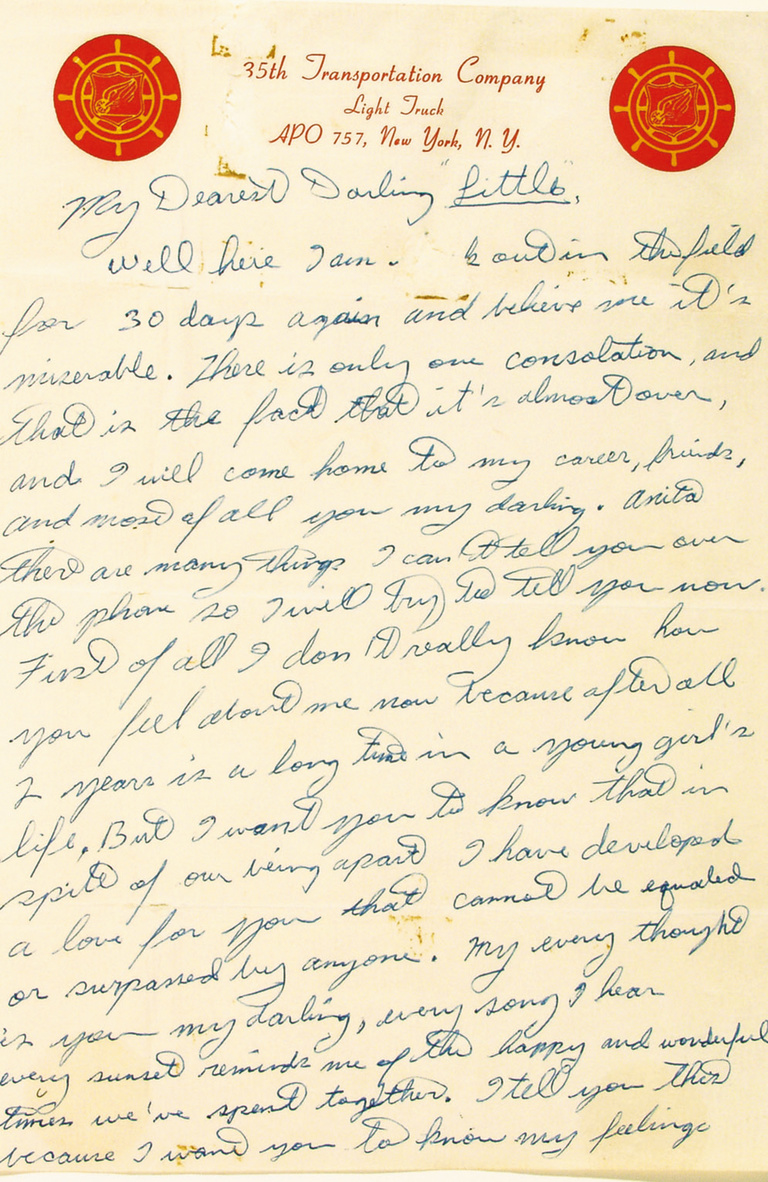 35th Transportation Company
Light Truck
APO 757, New York, N. Y.
My Dearest Darling "Little",
Well here I am. out in the field
for 30 days again and believe me it's
miserable. There is only one consolation, and
that is the fact that it's almost over,
and I will come home to my career, friends,
and most of all you my darling. Anita
there are many things I can't tell you over
the phone so I will try to tell you now.
First of all I don't really know how
you feel about me now because after all
2 years is a long time in a young girl's
life. But I want you to know that in
spite of our being apart I have developed
a love for you that cannot be equaled
or surpassed by anyone. My every thought
is you my darling, every song I hear
every sunset reminds me of the happy and wonderful
times we've spent together. I tell you this
because I want you to know my feelings